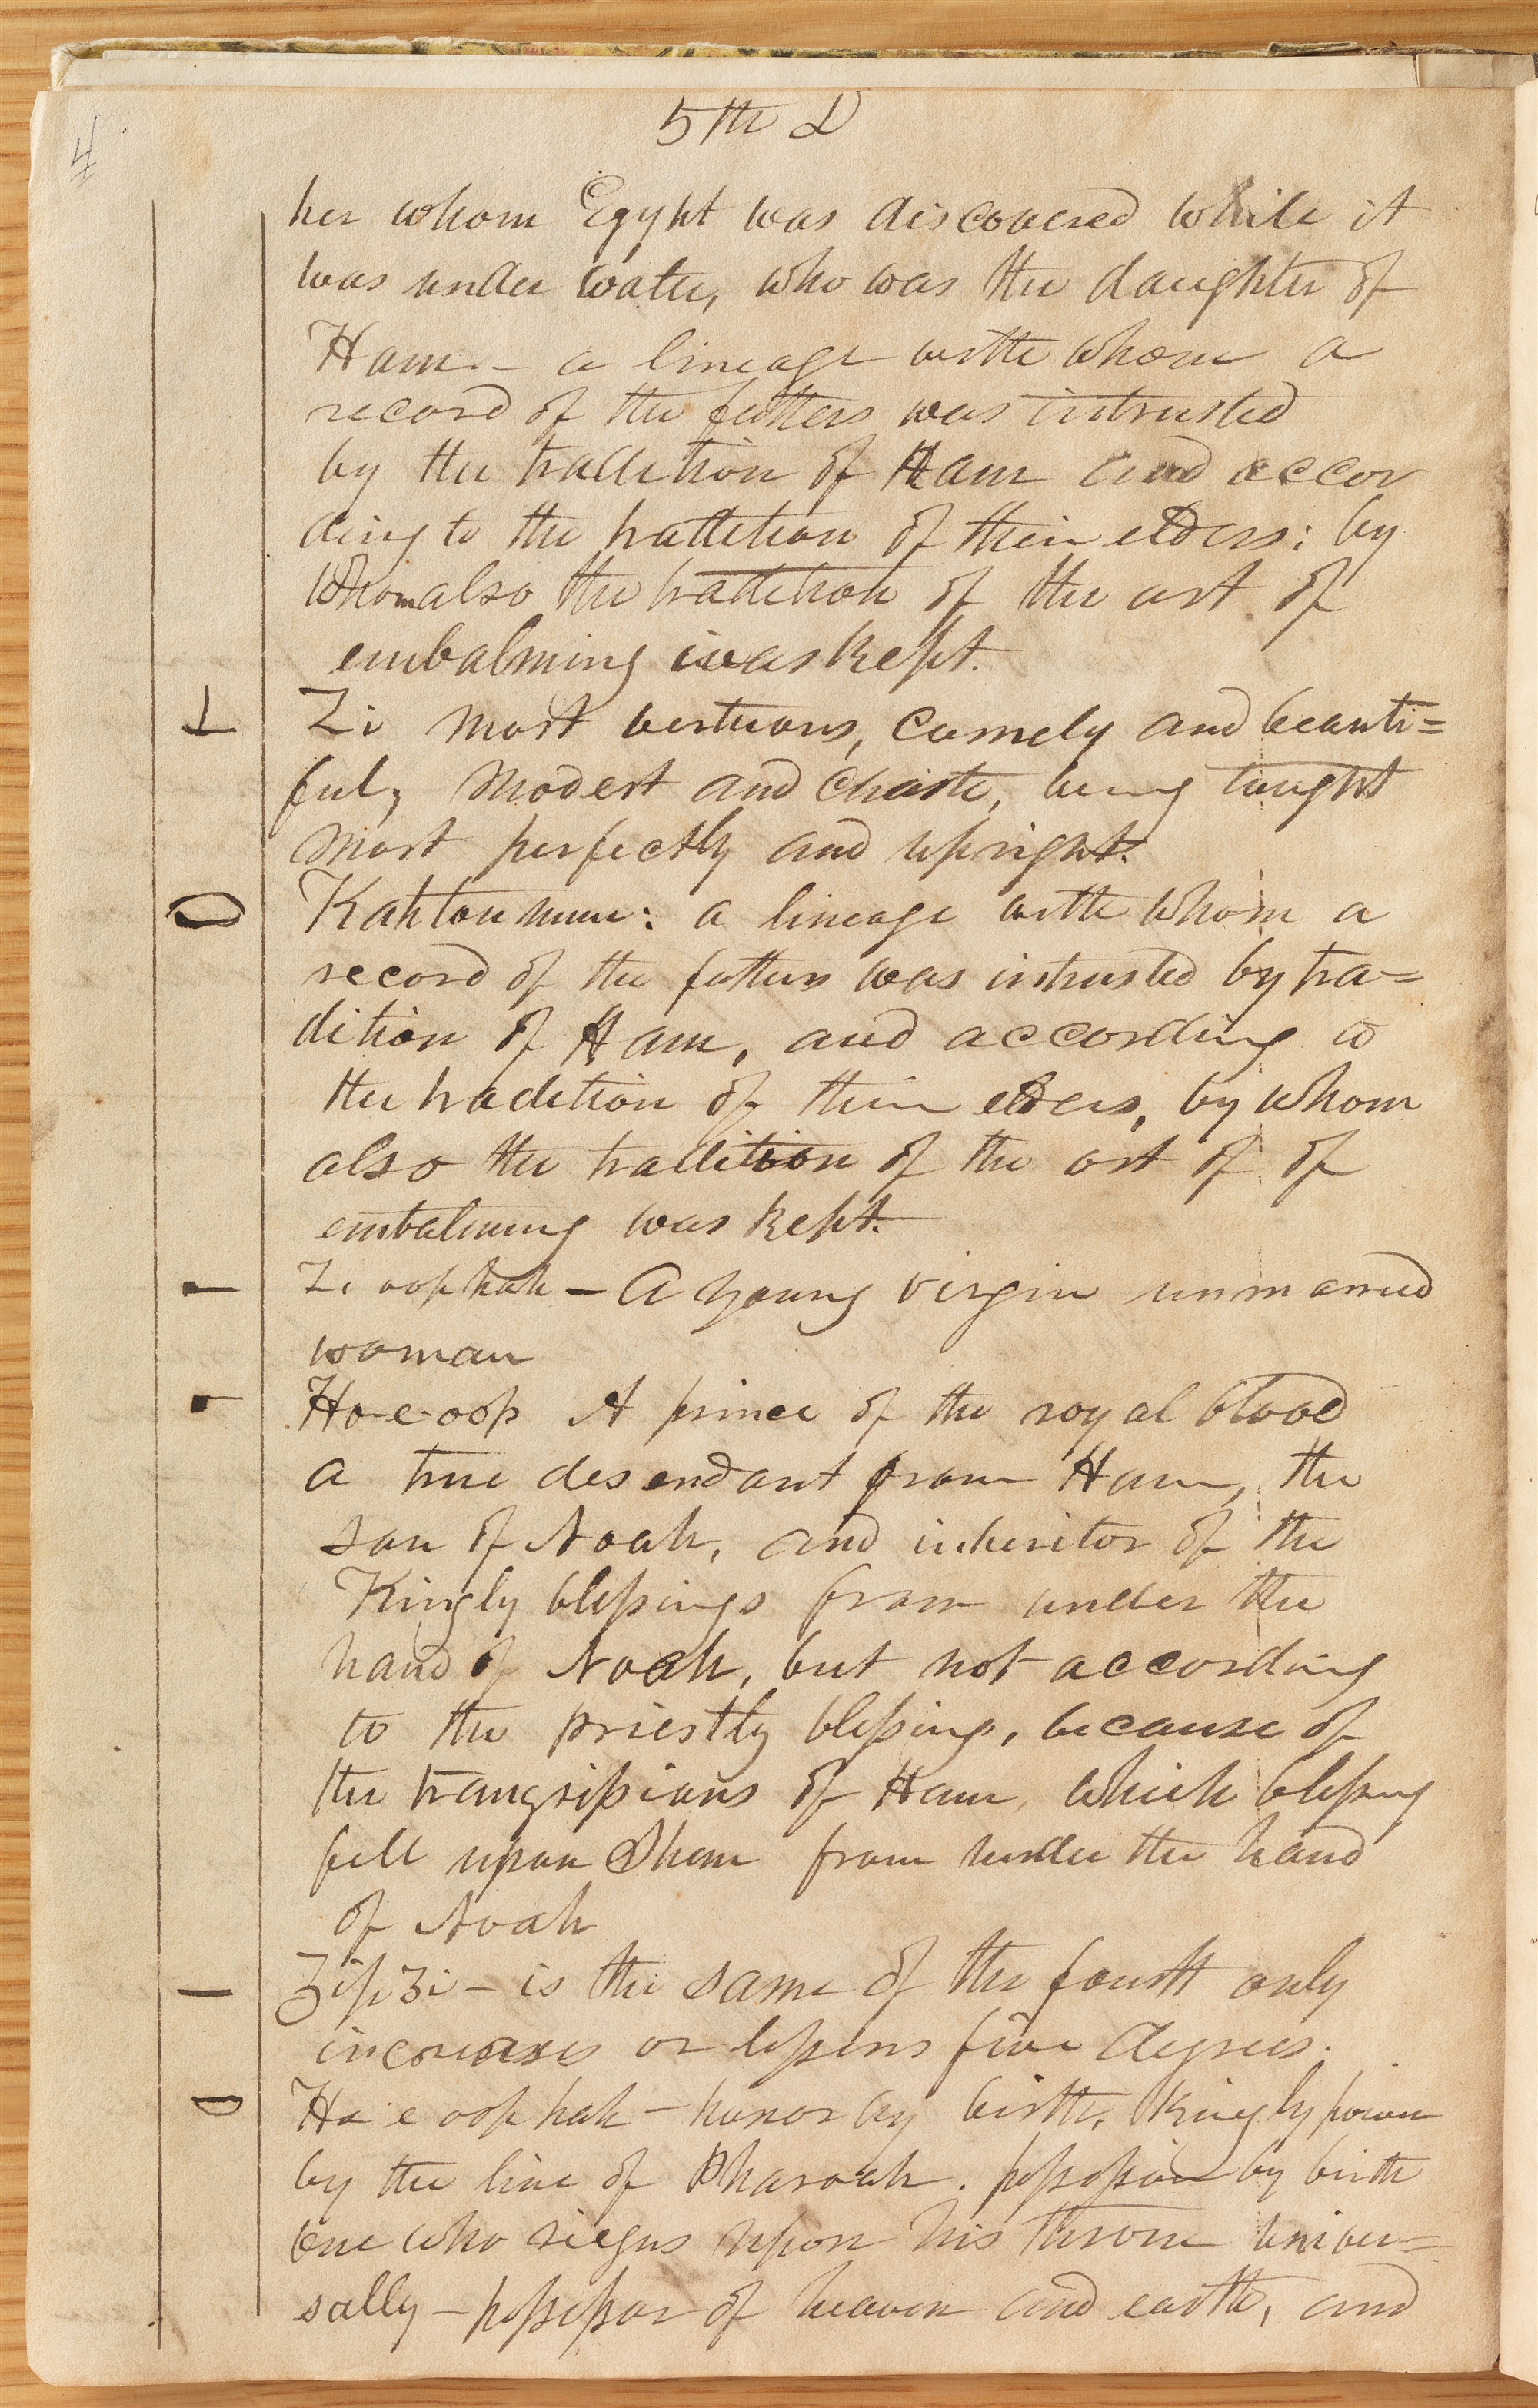 4
5th D
her whom Egypt was discovered while it
was under water, who was the daughter of
Ham.— a lineage with whom a
record of the fathers was intrusted
by the tradition of Ham and accor
ding to the tradition of their elders; by
whom also the tradition of the art of
embalming was kept.
Zi most vertuous, comely and beauti=
ful, modest and chaste, being taught
most perfectly and upright.
Kah tou mun: a lineage with whom a
record of the fathers was intrusted by tra=
dition of Ham, and according to
the tradition of their elders, by whom
also the tradition of the art of of
embalming was kept.
Zi oop hah — A young virgin unmarried
woman
Ho-e-oop A prince of the royal blood
a true desendant from Ham, the
son of Noah, and inheritor of the
Kingly blessings from under the
hand of Noah, but not according
to the priestly blessing, because of
the trangsissions of Ham, which blessing
fell upon Shem from under the hand
of Noah
Zip Zi — is the same of the fourth only
increases or lessens five degrees.
Ho e oop hah — honor by birth, Kingly power
by the line of Pharoah. possession by birth
one who riegns upon his throne univer=
sally — possessor of heaven and earth, and